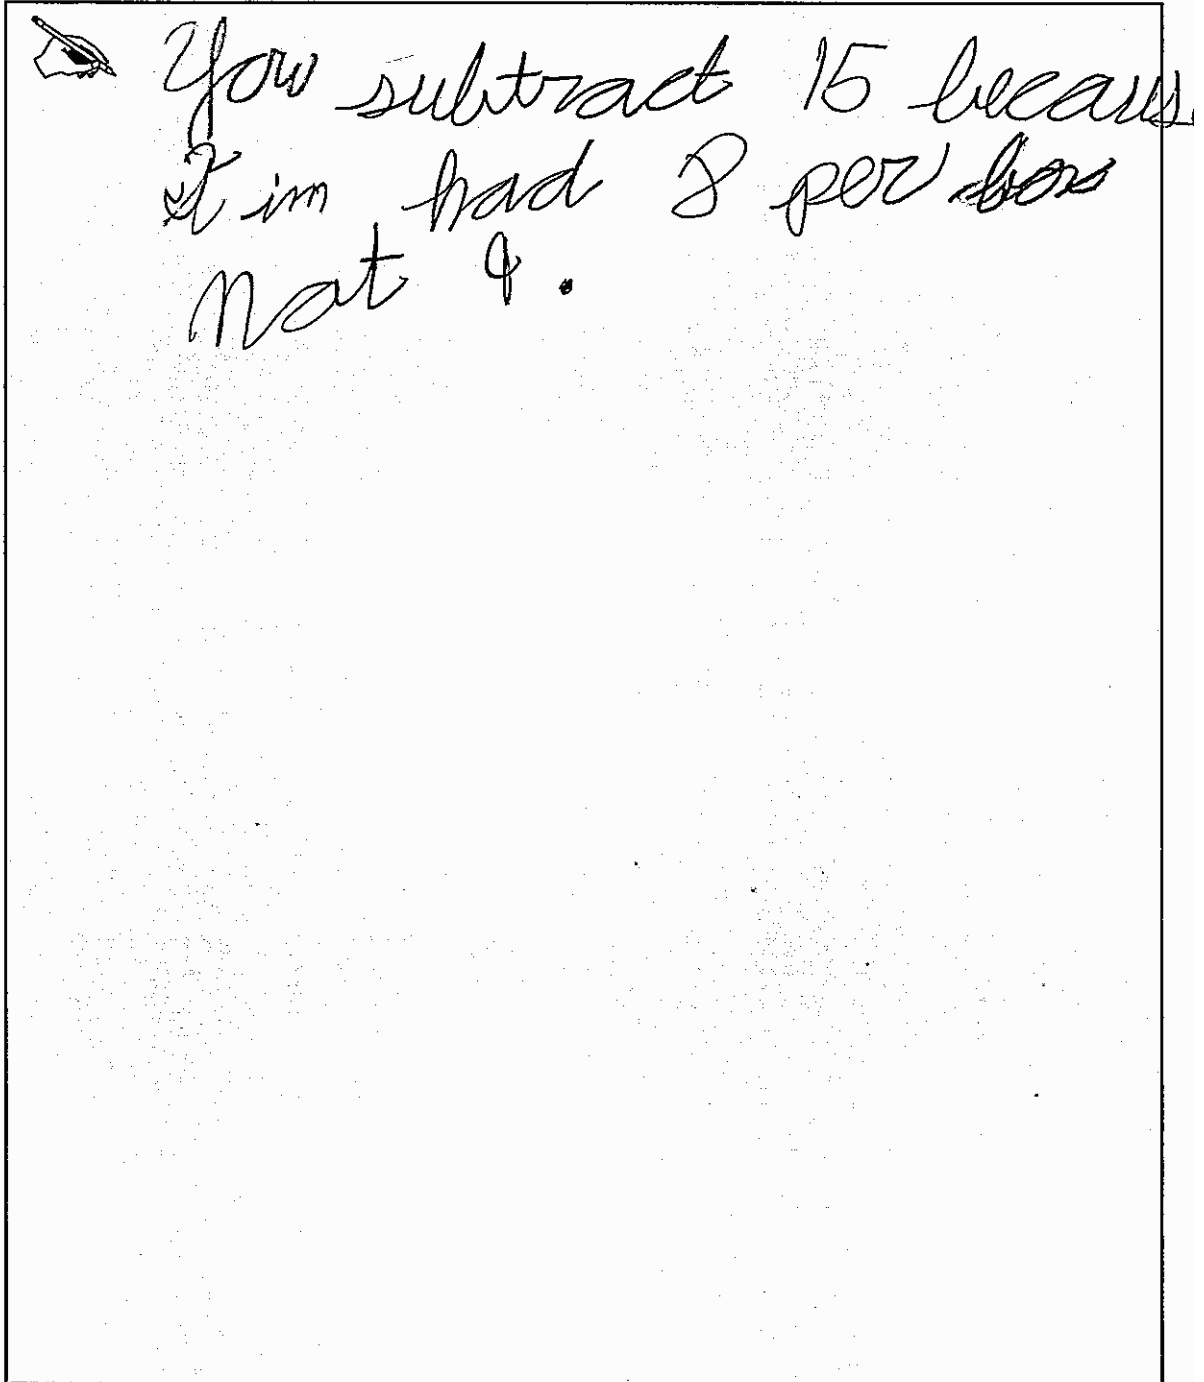 You subtract 15 because
Tim had 8 per box
not 9.